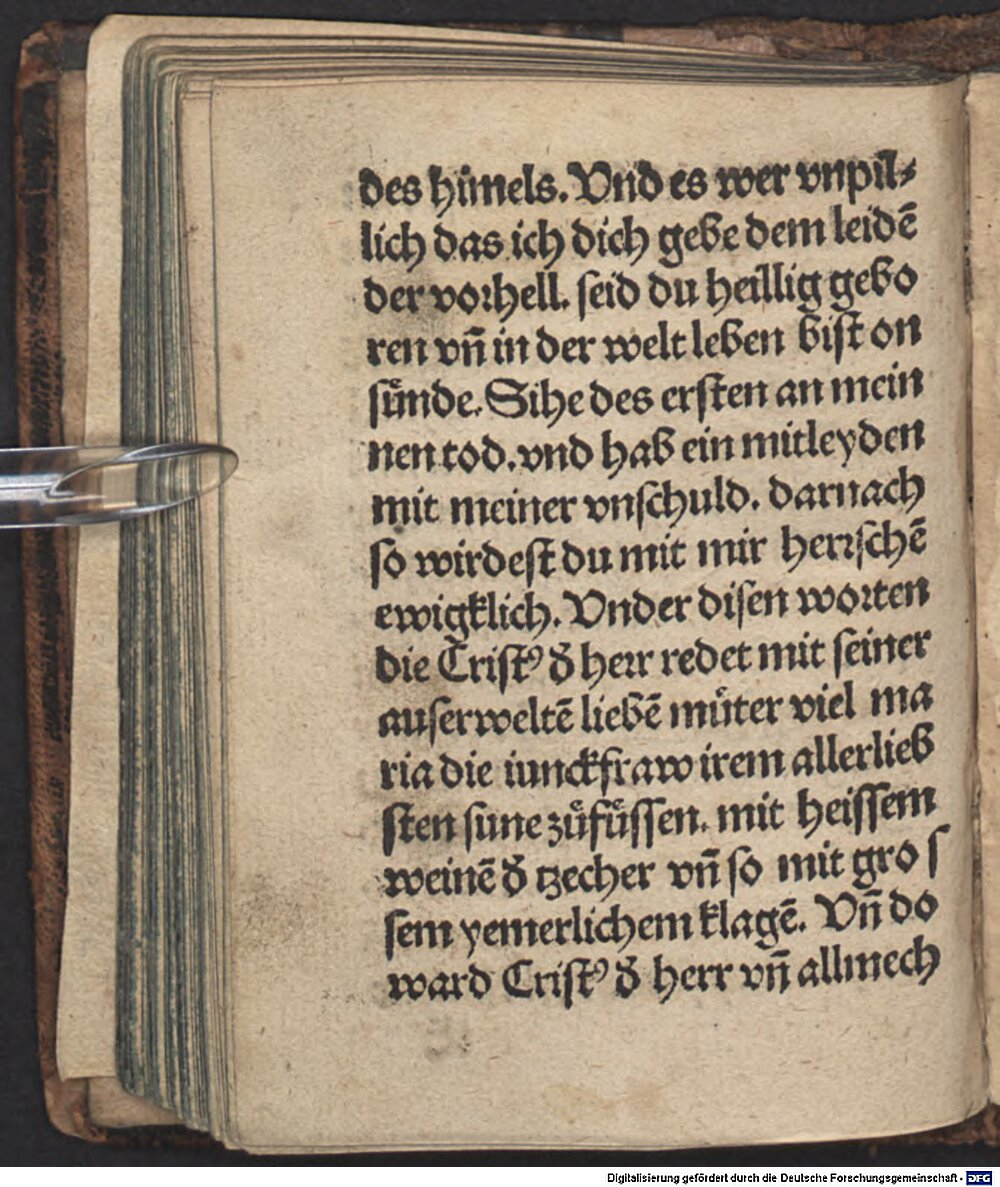 des himels. Vnd es wer vnpil⸗
lich das ich dich gebe dem leidē
der vorhell. seid du heillig gebo
ren vn̄ in der welt leben bist on
sünde. Sihe des ersten an mein
nen tod. vnd hab ein mitleyden
mit meiner vnschuld. darnach
so wirdest du mit mir herrschē
ewigklich. Vnder disen worten
die Cristꝰ d̕ herr redet mit seiner
auserweltē liebē můter viel ma
ria die iunckfraw irem allerlieb
sten sune zůfüssen. mit heissem
weinē d̕ tzecher vn̄ so mit gro s
sem yemerlichem klagē. Vn̄ do
ward Cristꝰ d̕ herr vn̄ allmech
Digitalisierung gefördert durch die Deutsche Forschungsgemeinschaft - DFG